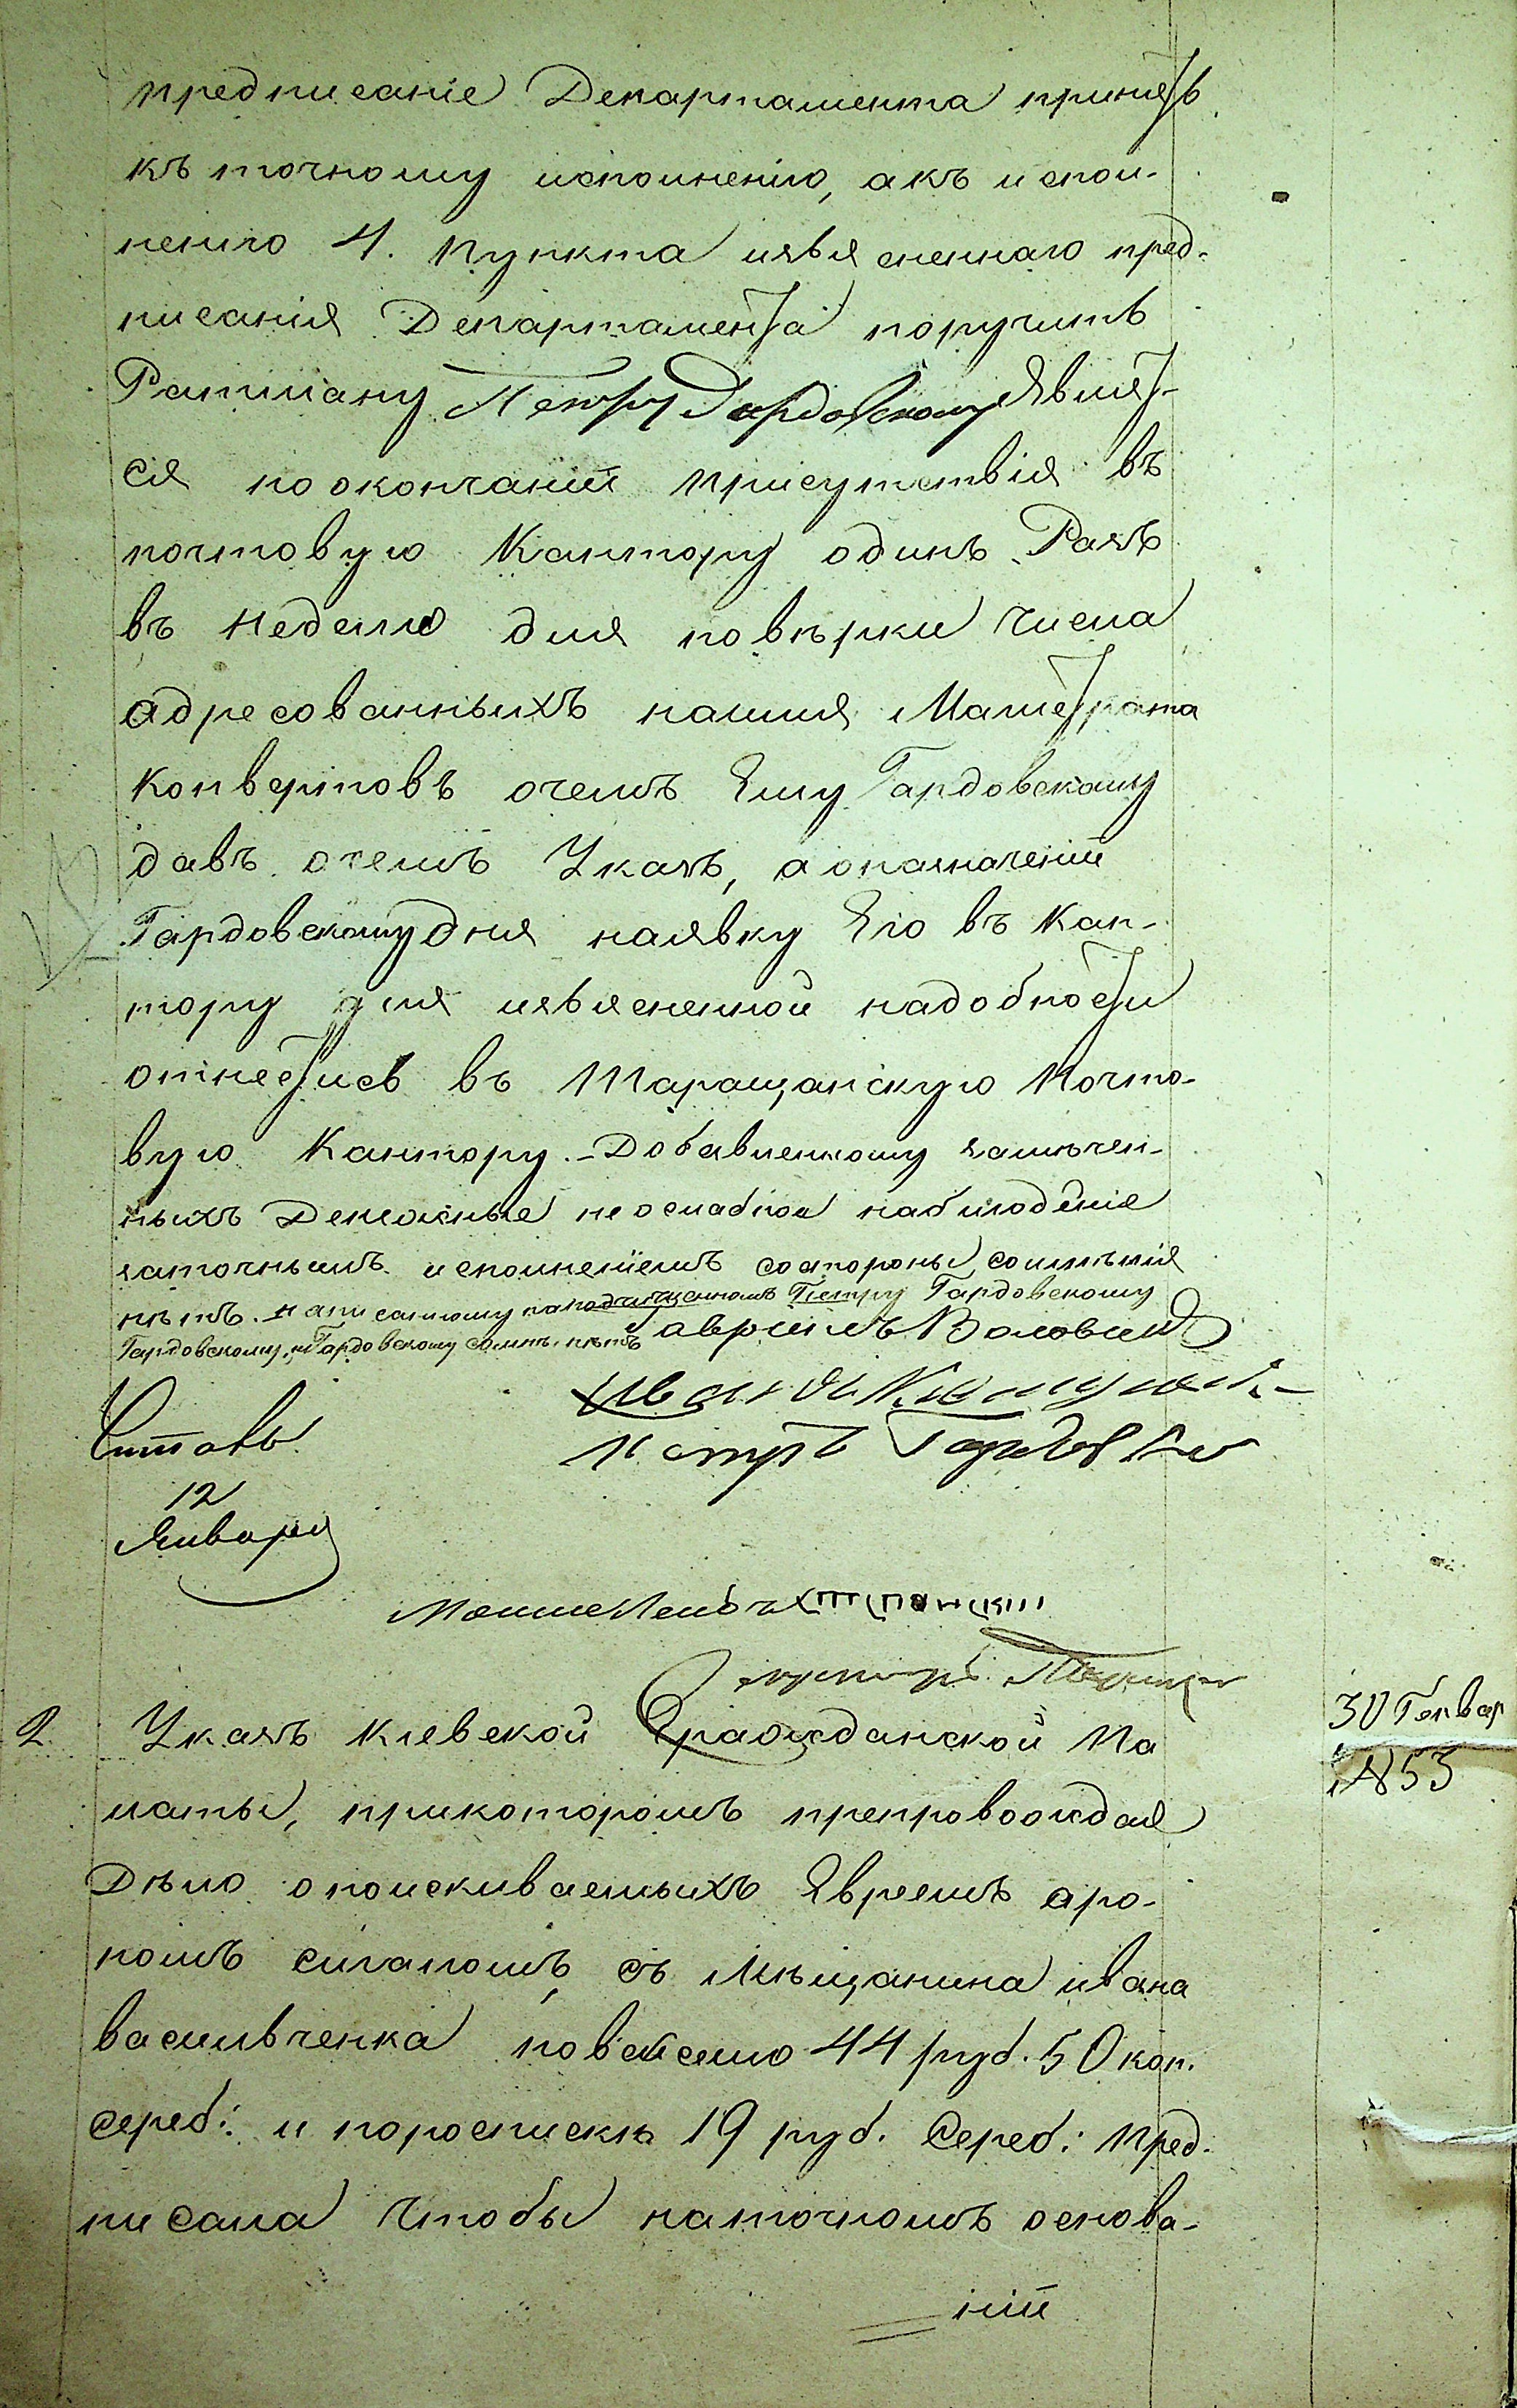 предписаніе Департамента принять
къ точному исполненію, а къ испол-
ненію 4. пункта изъясненнаго пред-
писанія Департамента поручить
Ратману Петру Гардовскому явит-
ся по окончаніи присутствія въ
почтовую Кантору одинъ Разъ
въ неделю для повѣрки числа
адресованныхъ на имя Магистрата
Конвертовъ о чемъ Ему Гардовскому
давъ о семъ Указъ, а о назначеніи
Гардовскому дня на явку Его въ Кан-
тору для изъясненной надобности
отнестись въ Таращанскую Почто-
вую Кантору. - Добавленному замѣчен-
ныхъ Денежные неослабное наблюденіе
за точнымъ исполненіемъ со стороны, сомнѣнія
нѣтъ. написанному по подчищенномъ Петру Гардовскому
Гардовскому, и Гардовскому сомн. нѣтъ
Гавріилъ Воловикъ
Иванъ
Петръ Гардовскій
Читалъ
12
Января
Секретарь
2. Указъ Кіевской Гражданской Па
латы, при которомъ препровождая
Дѣло о поискиваемыхъ Евреемъ Аро-
номъ Сигаломъ, съ Мѣщанина Ивана
Васильченка по векселю 44 руб. 50 коп.
сереб: и по роспискѣ 19 руб. Сереб: Пред-
писала чтобы на точномъ основа-
ніи
30 Генвар
№ 53